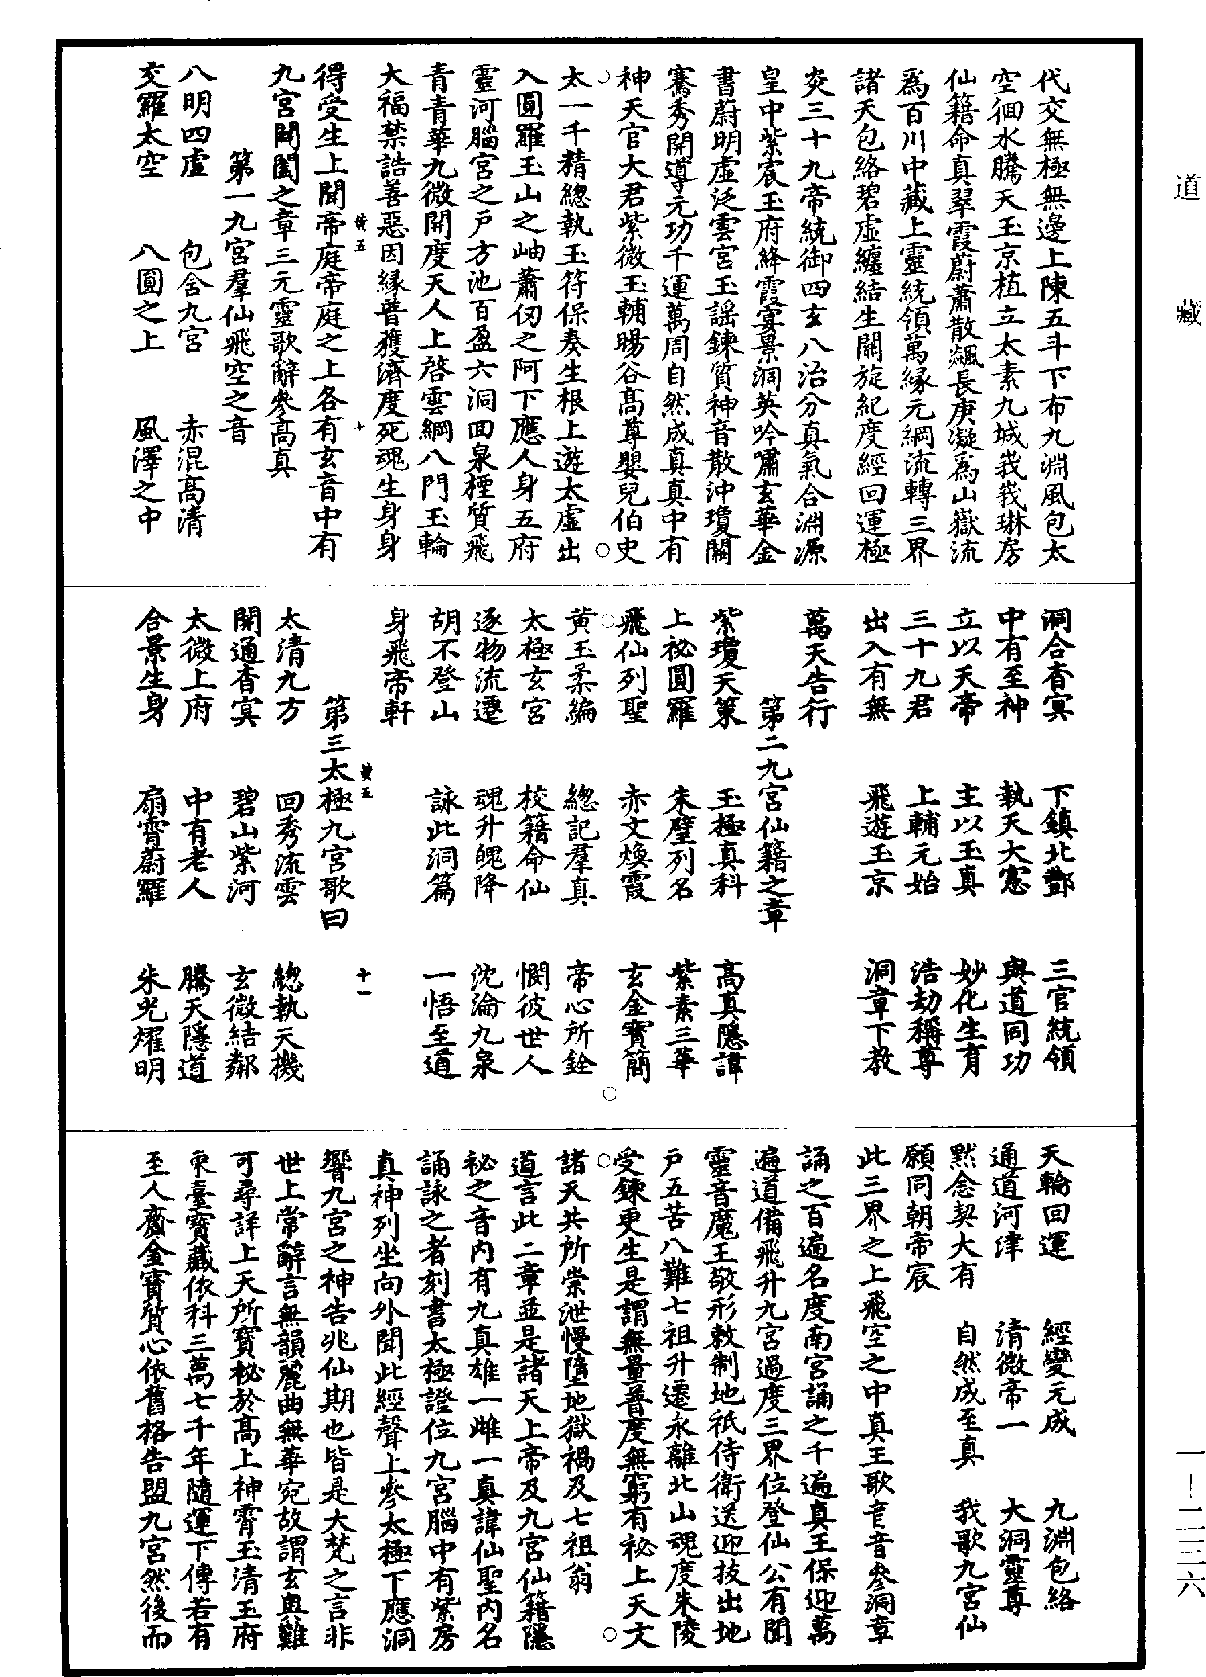 道藏
代交無極無邊上陳五斗下布九淵風包太
空徊水騰天玉京植立太素九城峩峩琳房
仙籍命真翠霞蔚蕭散飊長庚凝爲山嶽流
爲百川中藏上靈統領萬緣元綱流轉三界
諸天包絡碧虛纏結生關旋紀度經回運極
炎三十九帝統御四玄八治分真氣合淵源
皇中紫宸玉府絳霞寥景洞英吟嘯玄華金
書蔚明虛泛雲宮玉謡鍊質神音散沖瓊闕
騫秀開導元功千運萬周自然成真真中有
神天官大君紫微玉輔暘谷髙尊嬰兒伯史
太一千精總執玉符保奏生根上遊太虛出
入圓羅玉山之岫蕭仞之阿下應人身五府
靈河腦宮之戸方池百盈六洞回泉極質飛
青青華九微開度天人上啓雲綱八門玉輪
大福禁誥善惡因緣普獲濟度死魂生身身
得受生上聞帝庭帝庭之上各有玄音中有
九宮開闔之章三元靈歌辭參高真
第一九宮羣仙飛空之音
八明四虛 包含九宮 赤混高清
交羅太空 八圓之上 風澤之中
黄五 十
洞合杳冥 下鎮北酆 三官統領
中有至神 執天大憲 與道同功
立以天帝 主以玉真 妙化生育
三十九君 上輔元始 浩劫稱尊
出入有無 飛遊玉京 洞章下教
萬天告行
第二九宮仙籍之章
紫瓊天策 玉極真科 高真隱諱
上祕圓羅 朱璧列名 紫素三華
飛仙列聖 赤文煥霞 玄金寶簡
黄玉柔編 總記羣真 帝心所銓
太極玄宮 校籍命仙 憫彼世人
逐物流遷 魂升魄降 沈淪九泉
胡不登山 詠此洞篇 一悟至道
身飛帝軒
黄五 十一
第三太極九宮歌曰
太清九方 回秀流雲 總執天機
開通杳冥 碧山紫河 玄微結鄰
太微上府 中有老人 騰天隱道
合景生身 扇霄蔚羅 朱光燿明
天輪回運 經變元成 九淵包絡
通道河津 清微帝一 大洞靈尊
黙念契大有 自然成至真 我歌九宮仙
願同朝帝宸
此三界之上飛空之中真王歌音音參洞章
誦之百遍名度南宮誦之千遍真王保迎萬
遍道備飛升九宮過度三界位登仙公有聞
靈音魔王敬形敕制地祇侍衛送迎技出地
戸五苦八難七祖升遷永離北山魂度朱陵
受鍊更生是謂無量普度無窮有祕上天文
諸天共所崇泄慢墮地獄禍及七祖翁
道言此二章並是諸天上帝及九宮仙籍隱
祕之音内有九真雄一雌一真諱仙聖内名
誦詠之者刻書太極證位九宮腦中有紫房
真神列坐向外聞此經聲上參太極下應洞
響九宮之神告兆仙期也皆是大梵之言非
世上常辭言無韻麗曲無華宛故謂玄奥難
可尋詳上天所寶祕於高上神霄玉清王府
東臺寶藏依科三萬七千年隨運下傳若有
至人齎金寶質心依舊格告盟九宮然後而
一—二三六